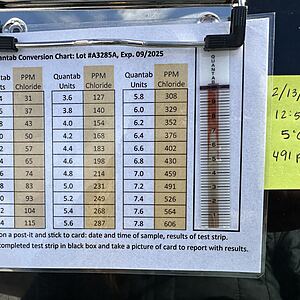 antab Conversion Chart: Lot #A3285A, Exp. 09/2025
antab Units PPM Chloride Quantab Units PPM Chloride Quantab Units PPM Chloride
31 3.6 127 5.8 308
37 3.8 140 6.0 329
43 4.0 154 6.2 352
50 4.2 168 6.4 376
57 4.4 183 6.6 402
65 4.6 198 6.8 430
74 4.8 214 7.0 459
83 5.0 231 7.2 491
93 5.2 249 7.4 526
104 5.4 268 7.6 564
115 5.6 287 7.8 606
QUANTAB
on a post-it and stick to card: date and time of sample, results of test strip.
completed test strip in black box and take a picture of card to report with results.
2/13/
12:5
5°
491 p